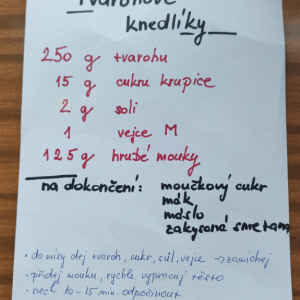 Tvarohové
knedlíky
250 g tvarohu
15 g cukru krupice
2 g soli
1 vejce M
125 g hrubé mouky
na dokončení: moučkový cukr
mák
máslo
zakysaná smetana
• do mísy dej tvaroh, cukr, sůl, vejce → zamíchej
• přidej mouku, rychle vypracuj těsto
• nech 10-15 min. odpočinout